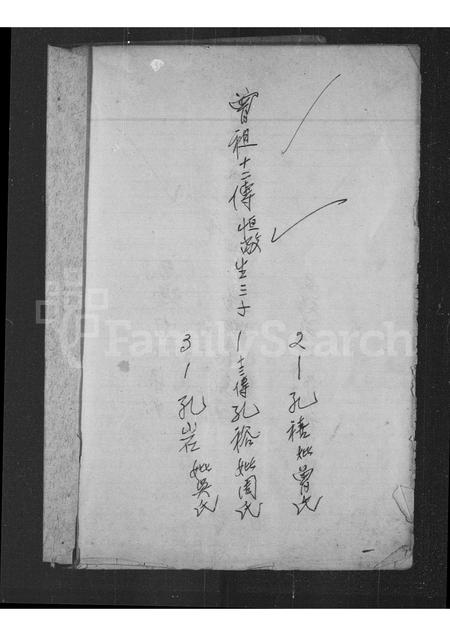 曾祖十二傳恒敬生三子
2-孔禧妣曾氏
1-十三傳孔裕妣周氏
3-孔岩妣吳氏
FamilySearch